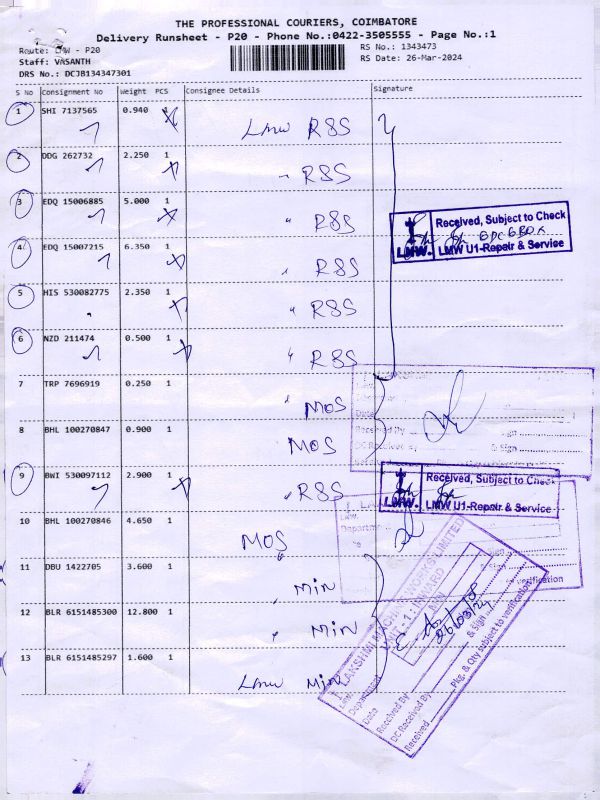 THE PROFESSIONAL COURIERS, COIMBATORE
Delivery Runsheet - P20 - Phone No.:0422-3505555 - Page No.:1
Route: LMW - P20
RS No.: 1343473
Staff: VASANTH
RS Date: 26-Mar-2024
DRS No.: DCJB134347301
S No Consignment No Weight PCS Consignee Details Signature
1 SHI 7137565 0.940 Lmw R&S
2 DDG 262732 2.250 1 " R&S
3 EDQ 15006885 5.000 1 " R&S
4 EDQ 15007215 6.350 1 " R&S
5 HIS 530082775 2.350 1 " R&S
6 NZD 211474 0.500 1 " R&S
7 TRP 7696919 0.250 1 " MOS
8 BHL 100270847 0.900 1 MOS
9 BWI 530097112 2.900 1 " R&S
10 BHL 100270846 4.650 1 MOS
11 DBU 1422705 3.600 1 " MIN
12 BLR 6151485300 12.800 1 " MIN
13 BLR 6151485297 1.600 1 Lmw MIN
Received, Subject to Check
LMW. LMW U1-Repair & Service
Received By
& Sign
DC Received By
& Sign
Received, Subject to Check
LMW. LMW U1-Repair & Service
Department
LAKSHMI MACHINE WORKS LIMITED
Department
Date 26/03/24
Received By
& Sign
DC Received By
Received Pkg. & Qty subject to verification